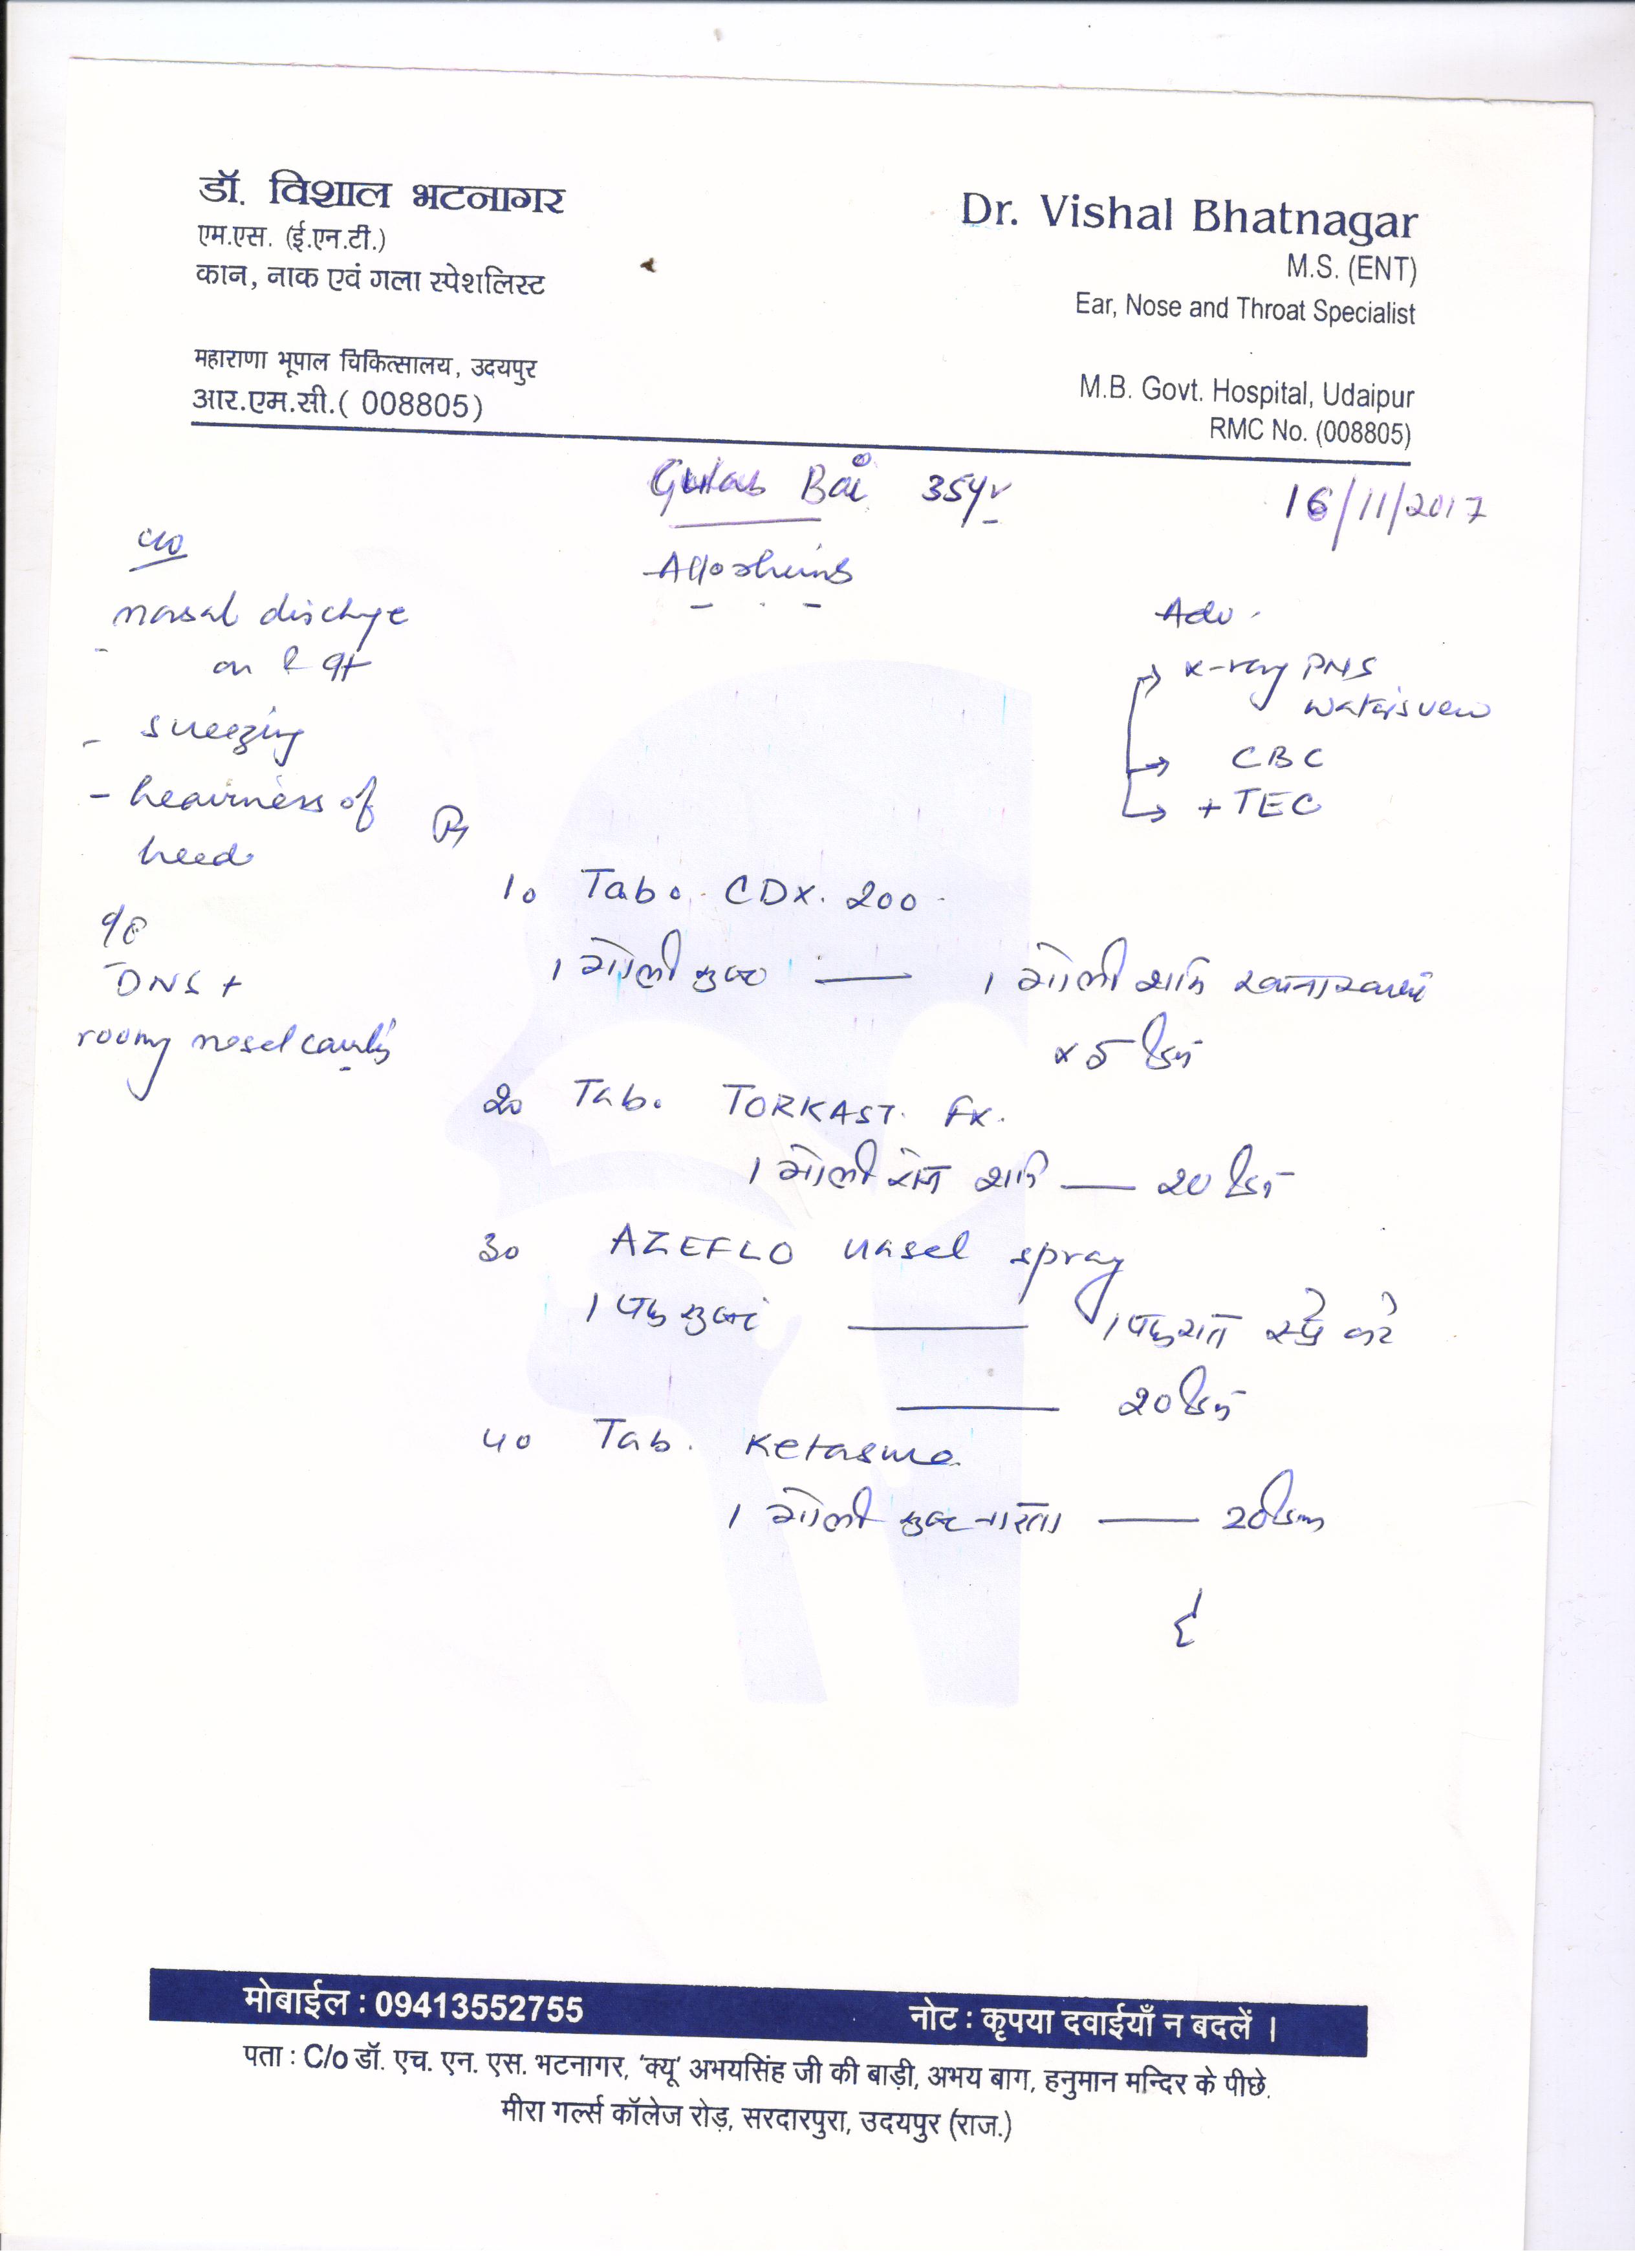 डॉ. विशाल भटनागर
एम.एस. (ई.एन.टी.)
कान, नाक एवं गला स्पेशलिस्ट
महाराणा भूपाल चिकित्सालय, उदयपुर
आर.एम.सी.( 008805)
Dr. Vishal Bhatnagar
M.S. (ENT)
Ear, Nose and Throat Specialist
M.B. Govt. Hospital, Udaipur
RMC No. (008805)
Gulab Bai 35yr
16/11/2017
c/o
nasal dischge
on &
- sneezing
- heaviness of
head
O/E
DNS +
roomy nasal cavity
Adv.
x-ray PNS
water's view
CBC
+ TEC
Rx
1. Tab. CDX. 200
1 गोली सुबह — 1 गोली रात्रि
x 5 दिन
2. Tab. TORKAST. FX.
1 गोली रोज रात्रि — 20 दिन
3. AZEFLO nasal spray
1 पफ सुबह — 1 पफ रात स्प्रे करे
— 20 दिन
4. Tab. Ketasma
1 गोली सुबह नाश्ता — 20 दिन
मोबाईल : 09413552755
नोट : कृपया दवाईयाँ न बदलें ।
पता : C/o डॉ. एच. एन. एस. भटनागर, 'क्यू' अभयसिंह जी की बाड़ी, अभय बाग, हनुमान मन्दिर के पीछे.
मीरा गर्ल्स कॉलेज रोड़, सरदारपुरा, उदयपुर (राज.)